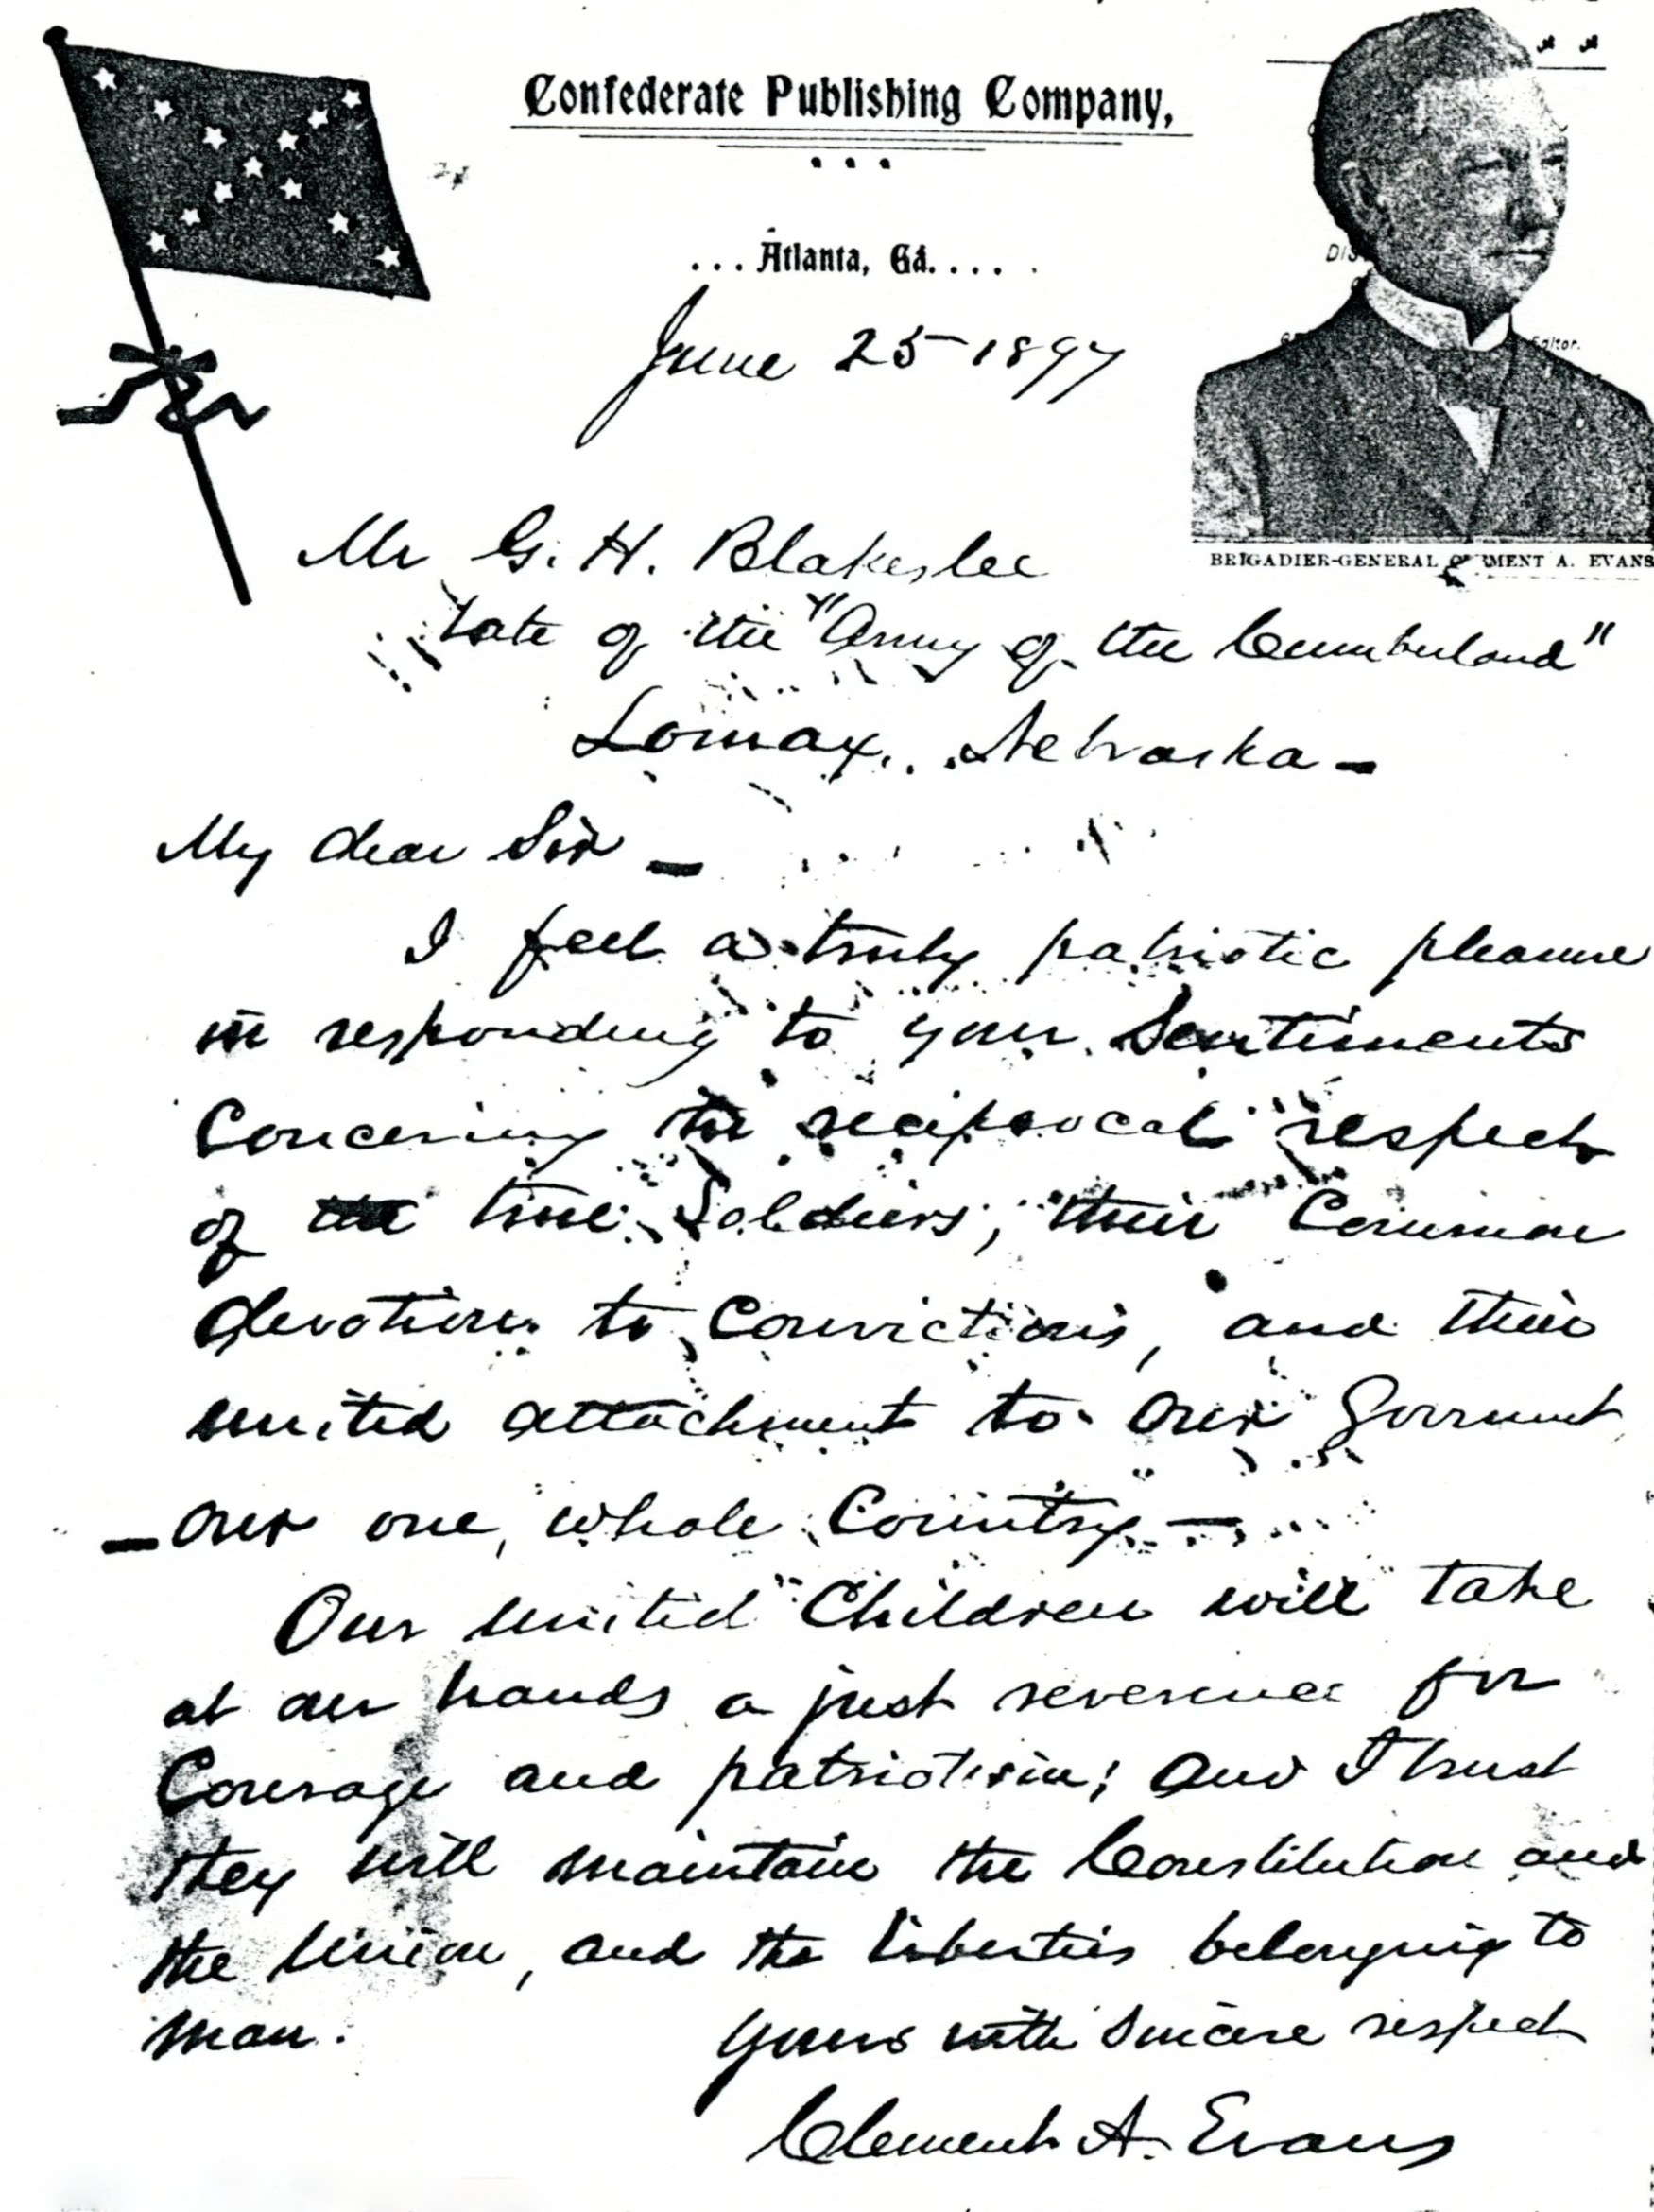 Confederate Publishing Company,
... Atlanta, Ga. ...
June 25 1897
BRIGADIER-GENERAL MENT A. EVANS
Mr G. H. Blakeslee
Late of the "Army of the Cumberland"
Lomax, Nebraska -
My dear Sir -
I feel a truly patriotic pleasure
in responding to your Sentiments
Concerning the reciprocal respect
of true Soldiers, their Common
devotion to Convictions, and their
united attachment to our Goverment
- our one, whole Country -
Our united Children will take
at our hands a just reverence for
Courage and patriotism; and I trust
they will maintain the Constitution and
the Union, and the liberties belonging to
man.
Yours with Sincere respect
Clement A. Evans